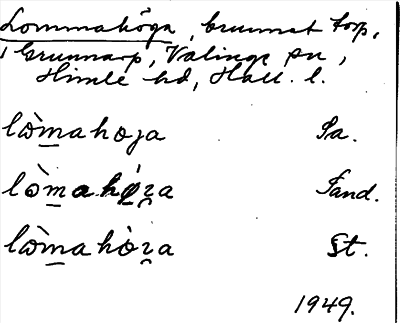 Lommahöga, brunnet torp,
i Grunnarp, Valinge sn,
Himle hd, Hall. l.
lòmahoja Sa.
lòmahöʒa Sand.
lòmahòʒa St.
1949.